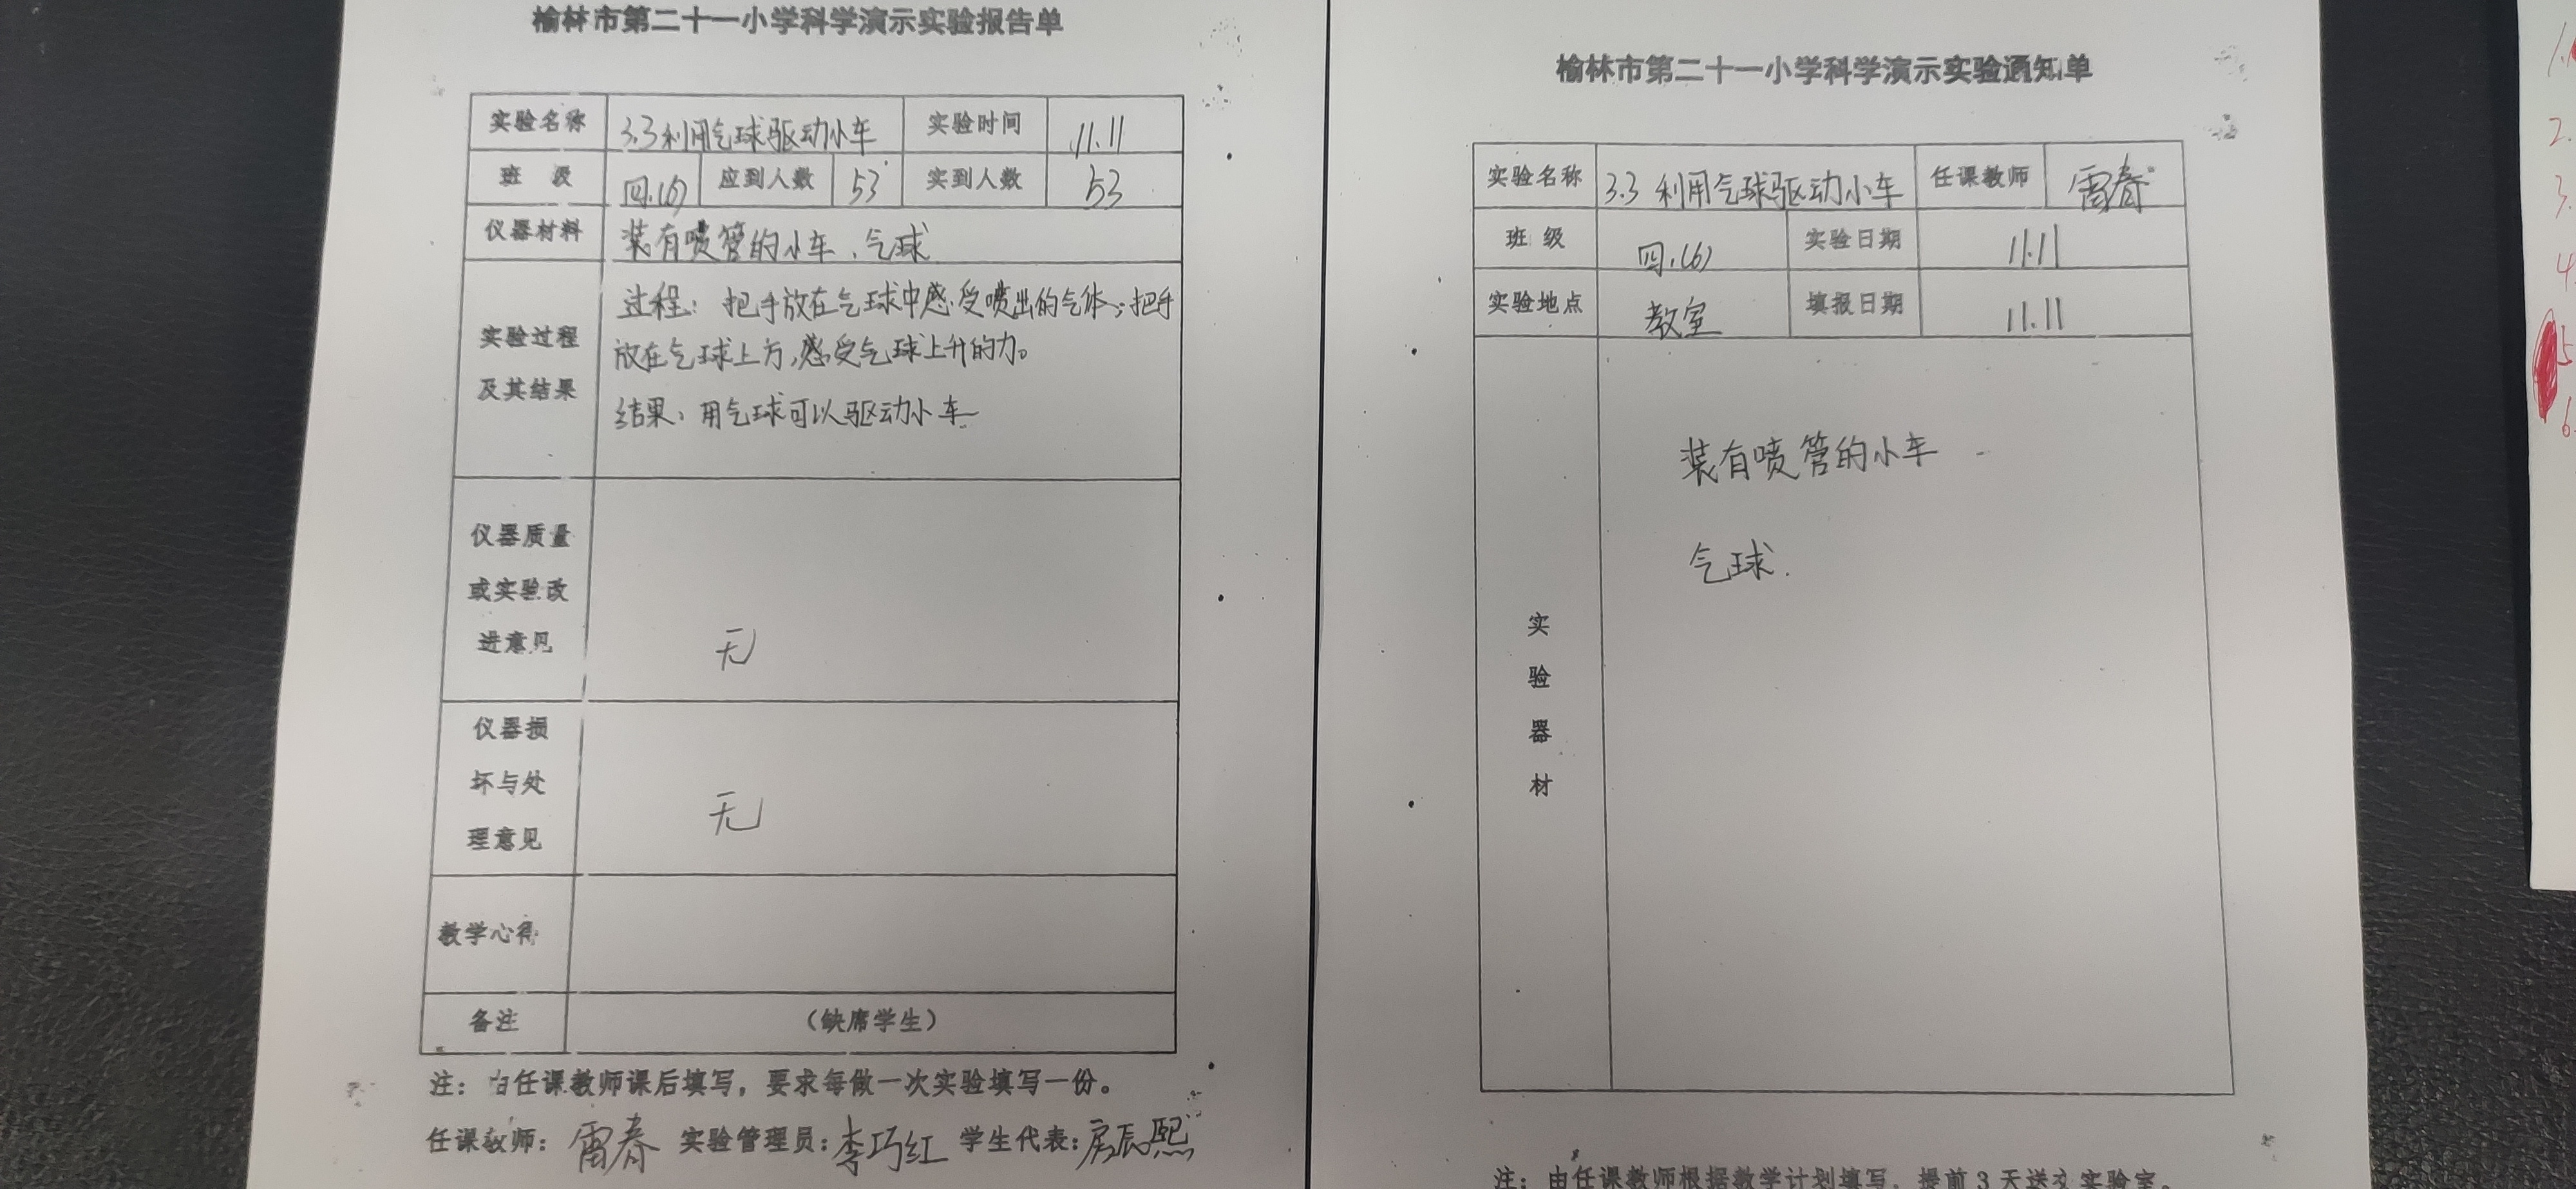 榆林市第二十一小学科学演示实验报告单
实验名称 3.3利用气球驱动小车 实验时间 11.11
班 级 四.(6) 应到人数 53 实到人数 53
仪器材料 装有喷管的小车、气球
实验过程
及其结果
过程：把手放在气球中感受喷出的气体；把手
放在气球上方，感受气球上升的力。
结果：用气球可以驱动小车
仪器质量
或实验改
进意见
无
仪器损
坏与处
理意见
无
教学心得
备注 （缺席学生）
注：由任课教师课后填写，要求每做一次实验填写一份。
任课教师：雷春 实验管理员：李巧红 学生代表：房辰熙
榆林市第二十一小学科学演示实验通知单
实验名称 3.3 利用气球驱动小车 任课教师 雷春
班 级 四.(6) 实验日期 11.11
实验地点 教室 填报日期 11.11
实
验
器
材
装有喷管的小车
气球.
注：由任课教师根据教学计划填写，提前3天送交实验室。
1.
2.
3.
4.
5
6.